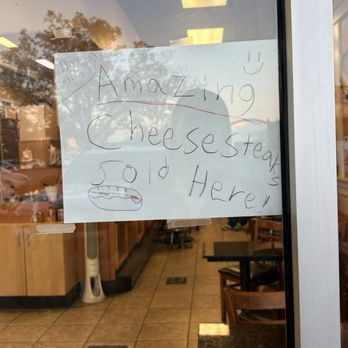 Amazing
Cheesesteaks
Sold Here!!